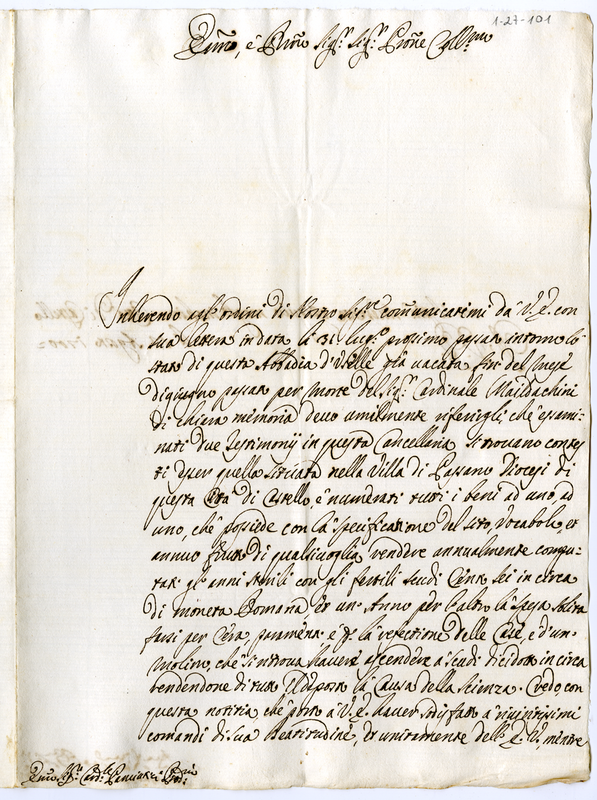 1-27-101
Emo, e Rmo Sigr. Sigr. Prone Collmo
Inherendo agl'ordini di Nostro Sigre. comunicatimi da V. E. con
sua lettera in data li 31 lugo. prossimo passato intorno lo
stato di questa Abbadia d'Uselle già vacata fin del mese
di giugno passato per morte del Sigr. Cardinale Maidachini
di chiara memoria devo umilmente riferirgli, che esami-
nati due Testimonij in questa Cancellaria si trovano contes-
ti esser quella situata nella Villa di Passano Diocesi di
questa Città di Castello, e numerati tutti i beni ad uno, ad
uno, che possiede con la specificatione del sito, Vocabolo, et
annuo frutto di qualsivoglia rendere annualmente compu-
tati gl'anni sterili con gli fertili scudi Cento sei in circa
di moneta Romana et un Anno per l'altro la spesa solita
farsi per Cera, paramenti e per la refectione delle Case, e d'un
Molino, che si trova havere ascendere a scudi dicidotto in circa
rendendone di tutto il deposto la Causa della scienza. Credo con
questa notitia che porto a V. E. haver sodisfatto a riveritissimi
comandi di Sua Beatitudine, et unitamente dell' E. V. mentre
Emo. Sigr. Card.le Panciatici